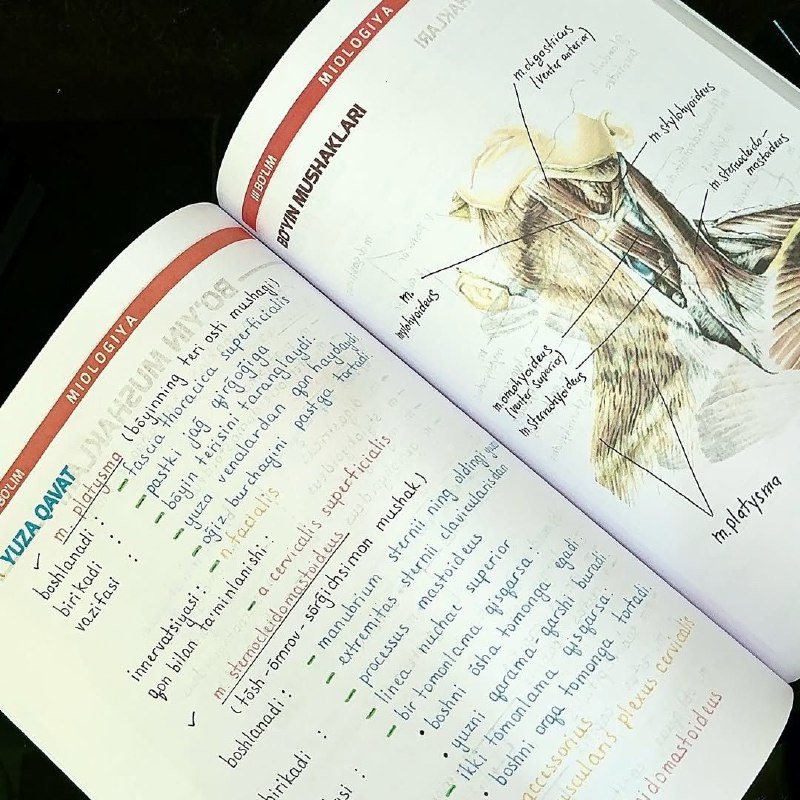 BO'LIM
MIOLOGIYA
YUZA QAVAT
✓ m. platysma (bõyinning teri osti mushagi)
boshlanadi : - fascia thoracica superficialis
birikadi : - pastki jağ qirğoğiga
vazifasi : - bõyin terisini taranglaydi.
- yuza venalardan qon haydaydi
- oğiz burchagini pastga tortadi.
innervatsiyasi: - n. facialis
qon bilan ta'minlanishi: - a. cervicalis superficialis
✓ m. sternocleidomastoideus
(tõsh - õmrov - sõrğichsimon mushak)
boshlanadi : - manubrium sternii ning oldingi yuza
- extremitas sternii clavicularisdan
birikadi : - processus mastoideus
- linea nuchae superior
- bir tomonlama qisqarsa:
• boshni õsha tomonga egadi.
• yuzni qarama-qarshi buradi.
- ikki tomonlama qisqarsa:
• boshni orqa tomonga tortadi.
accessorius
muscularis plexus cervicalis
idomastoideus
III BO'LIM
MIOLOGIYA
BO'YIN MUSHAKLARI
m. digastricus
(venter anterior)
m. stylohyoideus
m. sternocleido-
mastoideus
m.
mylohyoideus
m. omohyoideus
(venter superior)
m. sternohyoideus
m. platysma